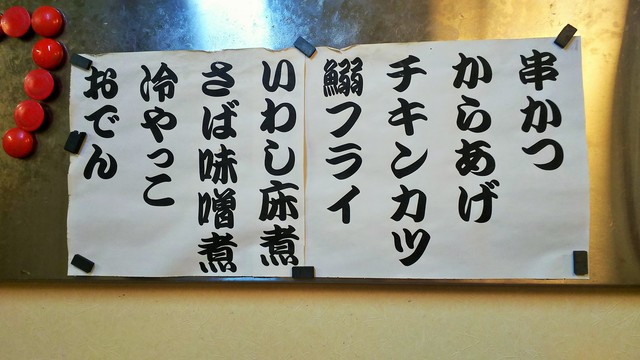 串かつ
からあげ
チキンカツ
鰯フライ
いわし床煮
さば味噌煮
冷やっこ
おでん